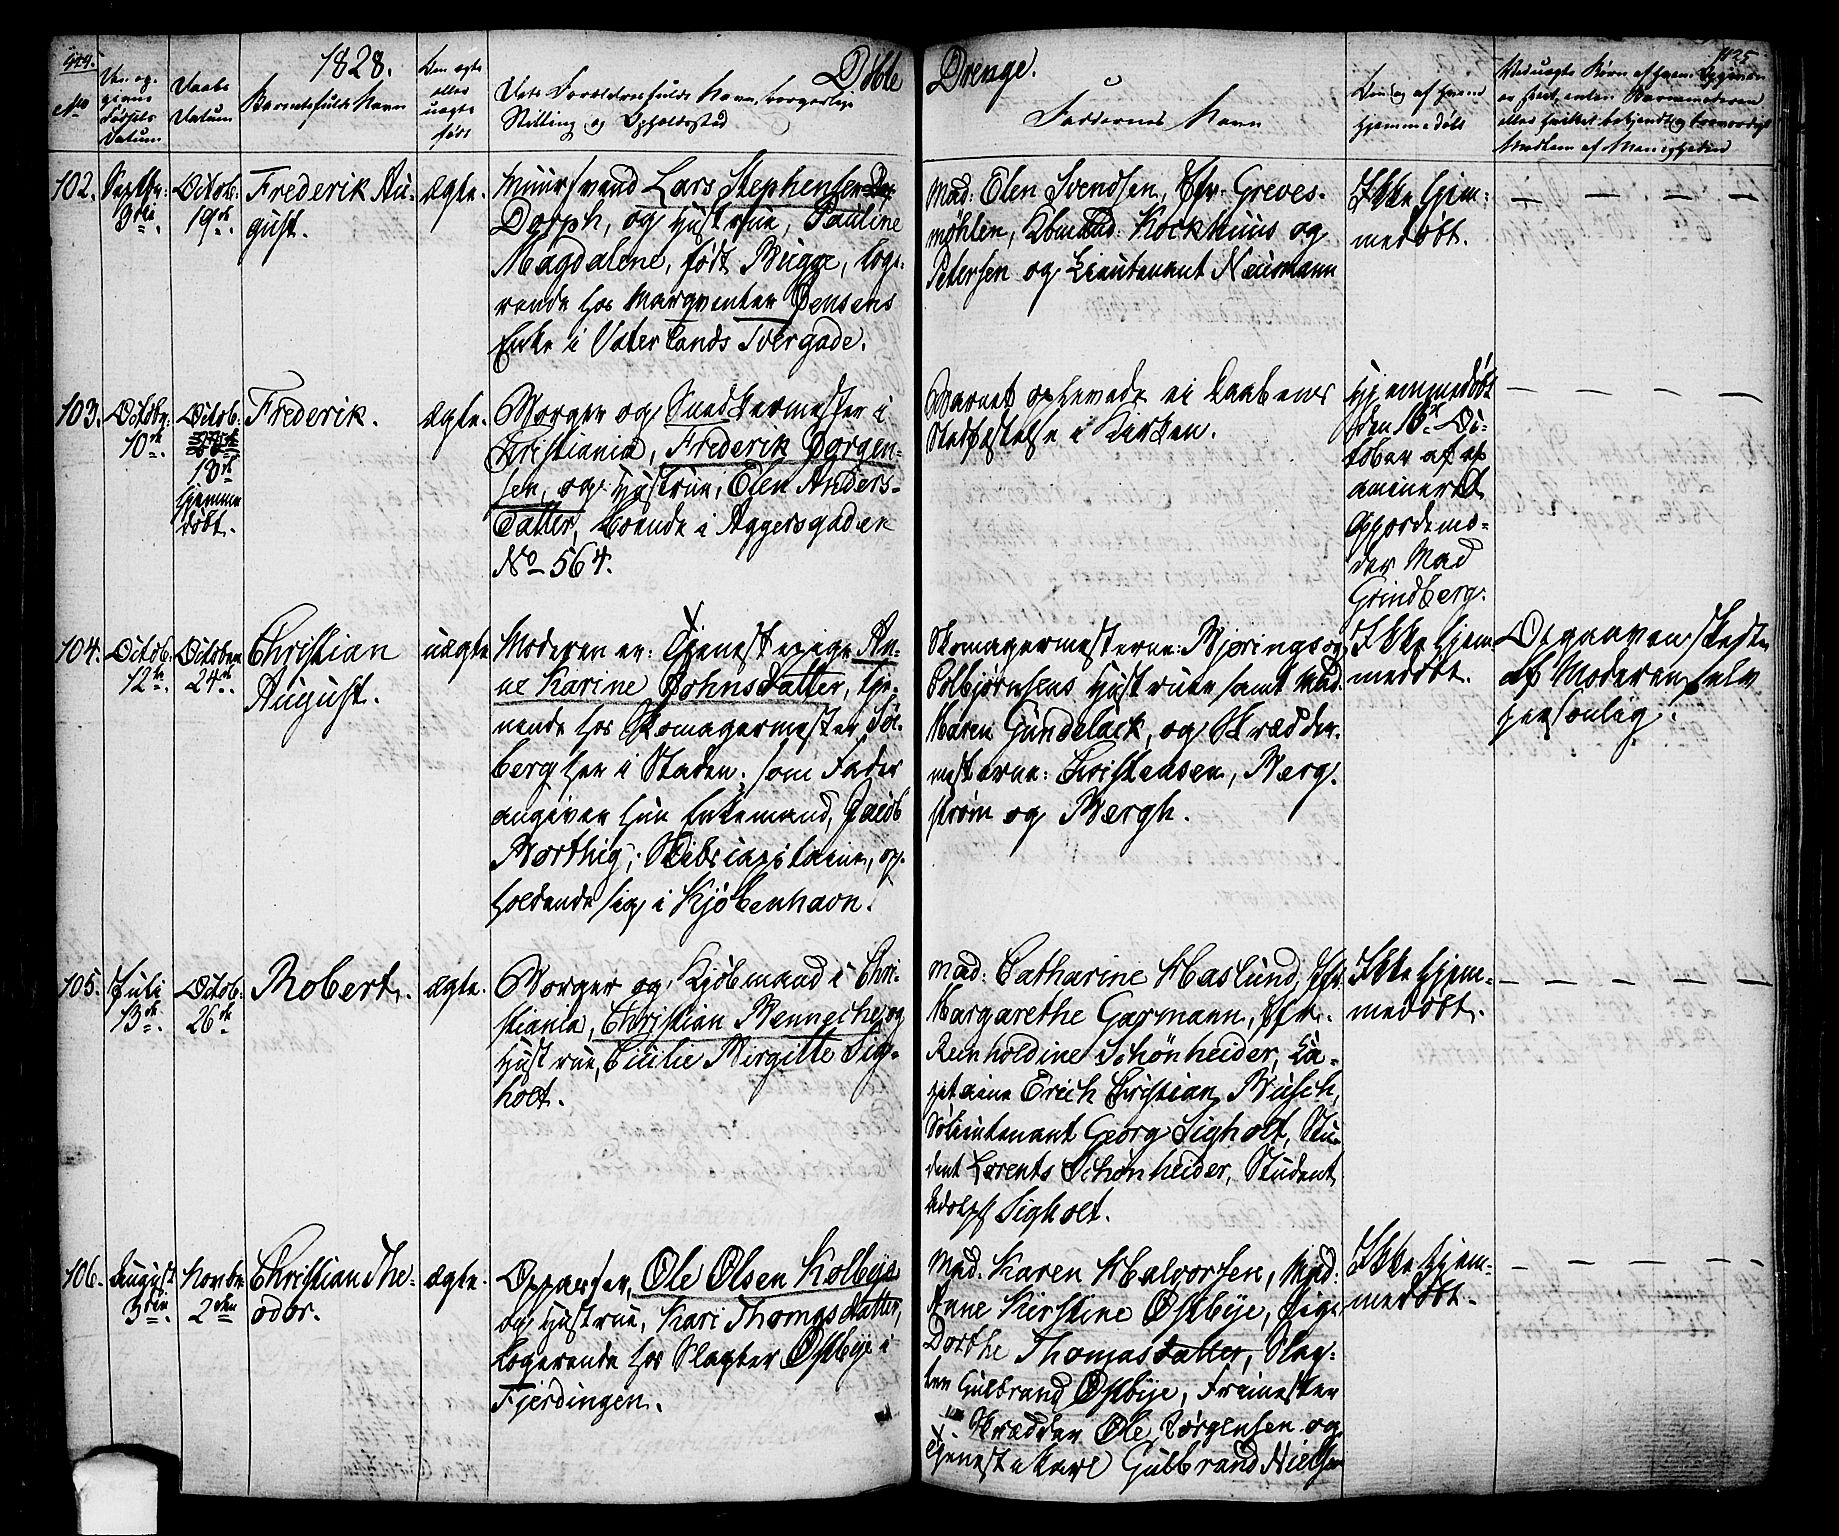 424.
1828.
Døbte
Drenge.
425
No
Den an-
givne
Fødsels
Datum
Daabs
Datum
Barnets fulde Navn
Om ægte
eller
uægte
født
Dets Forældres fulde Navn, borgerlige
Stilling og Opholdssted
Faddernes Navn
Om og af hvem
hjemmedøbt
Ved uægte Børn af hvem Opgiven
er skeet, enten Barnemoderen
eller hvilket bekjendt og troværdigt
Medlem af Menigheden
102.
Septbr.
Octob.
19de.
Frederik Au-
gust.
ægte.
Muursvend Lars Stephensen
Dorph, og Hustrue, Pauline
Magdalene, født Bugge, loge-
rende hos Marqventer Jensens
Enke i Vaterlands Tvergade.
Mad: Elen Svendsen, Jfr. Greves-
möhlen, Kockhuus og
Petersen og Lieutenant Neumann
Ikke hjem-
medøbt.
103.
Octobr.
10de.
Octob.
18de
hjemme
døbt.
Frederik.
ægte.
Borger og Snedkermester i
Christiania, Frederik Jørgen-
sen, og Hustrue, Elen Anders-
datter, boende i Aggersgaden
No 564.
Barnet oplevede ei Daabens
Stadfæstelse i Kirken.
Hjemmedøbt
den 18de Oc-
tober af ex-
amineret
Gjordemo-
der Mad
Grindberg.
104.
Octob.
12te.
October
24de.
Christian
August.
uægte
Moderen er: Tjenestepige An-
ne Karine Johnsdatter, tje-
nende hos Skomagermester Sol-
berg her i Staden; som Fader
angiver hun Enkemand, Jacob
Northig, Skibscapitaine, op-
holdende sig i Kjøbenhavn.
Skomagermesterne: Bjørings og
Colbjørnsens Hustruer samt Mad.
Maren Gundelack, og Skrædder-
mesterne: Christensen, Berg-
strøm og Bergh.
Ikke hjem-
medøbt.
Opgaven skedte
af Moderen selv
personlig.
105.
Juli
13de.
Octob.
26de
Robert.
ægte.
Borger og Kjøbmand i Chri-
stiania, Christian Benneche og
Hustrue, Cicilie Birgitte Sig-
holt.
Mad: Catharine Haslund, Jfr.
Margarethe Garmann, Jfr.
Reinholdine Schønheider, Ca-
pitaine Erich Christian Busch,
Søelieutenant Georg Sigholt, Stu-
dent Lorents Schønheider, Student
Adolph Sigholt.
Ikke hjem-
medøbt.
106.
August
3die.
Novbr.
2den
Christian The-
odor.
ægte.
Oppasser, Ole Olsen Kolbye
og Hustrue, Kari Thomasdatter,
logerende hos Slagter Østbye i
Fjerdingen.
Mad: Karen Halvorsen, Mad:
Anne Kirstine Østbye, Pige
Dorthe Thomasdatter, Slag-
ter Gulbrand Østbye, Frimester
Skrædder Ole Jørgensen og
Tjenestekarl Gulbrand Nielsen
Ikke hjem-
medøbt.